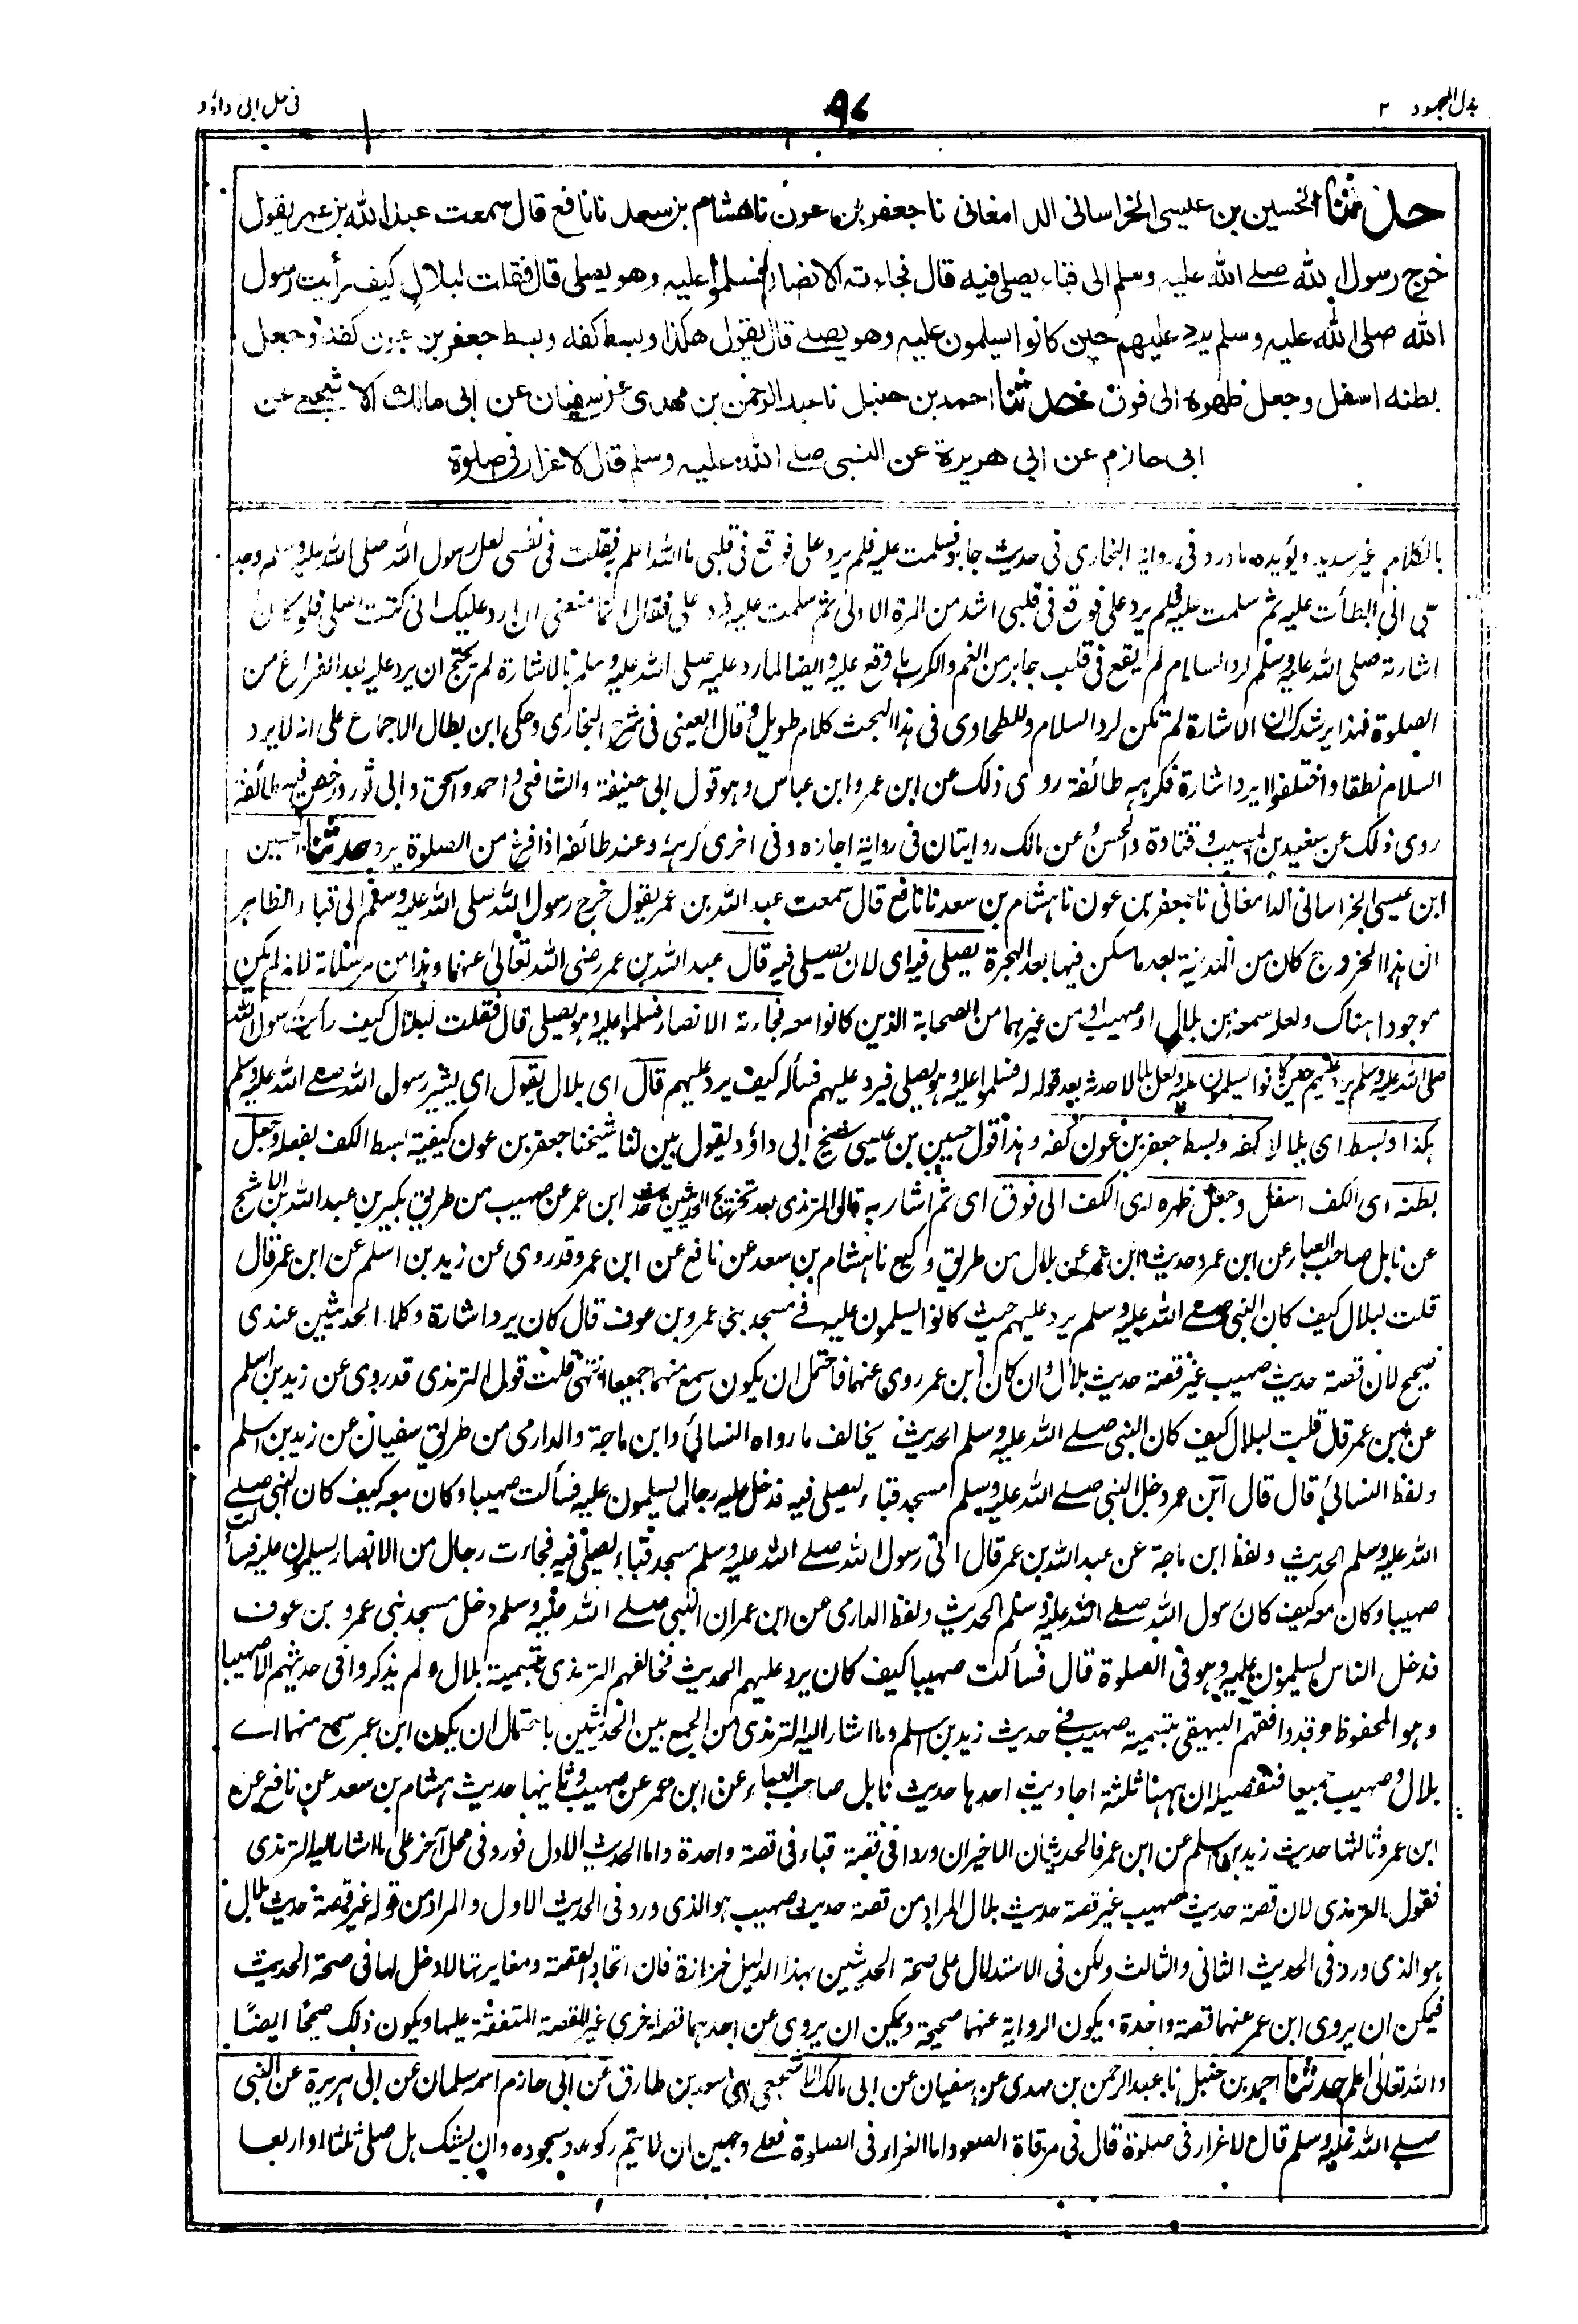 بذل المجهود ٢
٩٦
فى حل ابى داؤد
حدثنا الحسين بن عيسى الخراسانى الدامغانى نا جعفر بن عون نا هشام بن سعد نا نافع قال سمعت عبد الله بن عمر يقول
خرج رسول الله صلے الله عليه وسلم الى قباء يصلى فيه قال فجاءته الانصار فسلموا عليه وهو يصلى قال فقلت لبلال كيف رأيت رسول
الله صلى الله عليه وسلم يرد عليهم حين كانوا يسلمون عليه وهو يصلے قال يقول هكذا وبسط كفه وبسط جعفر بن عون كفه وجعل
بطنه اسفل وجعل ظهره الى فوق حدثنا احمد بن حنبل نا عبد الرحمن بن مهدى عن سفيان عن ابى مالك الاشجعے عن
ابى حازم عن ابى هريرة عن النبى صلے الله عليه وسلم قال لا غرار فى صلوة
بالكلام غير سديد ويؤيده ما ورد فى رواية البخارى فى حديث جابر فسلمت عليه فلم يرد على فوقع فى قلبى ما الله اعلم به فقلت فى نفسى لعل رسول الله صلى الله عليه وسلم وجد
على انى ابطأت عليه ثم سلمت عليه فلم يرد على فوقع فى قلبى اشد من المرة الاولى ثم سلمت عليه فرد على فقال انما منعنى ان ارد عليك انى كنت اصلى فلو كان
اشارته صلى الله عليه وسلم لرد السلام لم يقع فى قلب جابر من الغم والكرب ما وقع عليه وايضا لما رد عليه صلى الله عليه وسلم بالاشارة لم يحتج ان يرد عليه بعد الفراغ من
الصلوة فهذا يرشدك ان الاشارة لم تكن لرد السلام وللطحاوى فى هذا البحث كلام طويل وقال العينى فى شرح البخارى وحكى ابن بطال الاجماع على انه لا يرد
السلام نطقا واختلفوا ا يرد اشارة فكرهه طائفة روى ذلك عن ابن عمر وابن عباس وهو قول ابى حنيفة والشافعى واحمد واسحق وابى ثور ورخص فيه طائفة
روى ذلك عن سعيد بن المسيب وقتادة والحسن وعن مالك روايتان فى رواية اجازه وفى اخرى كرهه وعند طائفة اذا فرغ من الصلوة يرد حدثنا الحسين
ابن عيسى الخراسانى الدامغانى نا جعفر بن عون نا هشام بن سعد نا نافع قال سمعت عبد الله بن عمر يقول خرج رسول الله صلى الله عليه وسلم الى قباء الظاهر
ان هذا الخروج كان من المدينة بعد ما سكن فيها بعد الهجرة يصلى فيه اى لان يصلى فيه قال عبد الله بن عمر رضى الله تعالى عنهما وهذا من مرسلاته لانه لم يكن
موجودا هناك ولعله سمعه من بلال او صهيب او من غيرهما من الصحابة الذين كانوا معه فجاءته الانصار فسلموا عليه وهو يصلى قال فقلت لبلال كيف رأيت رسول الله
صلى الله عليه وسلم يرد عليهم حين كانوا يسلمون عليه ولعل بلالا حدثه بعد قوله له فسلموا عليه وهو يصلى فيرد عليهم فسأله كيف يرد عليهم قال اى بلال يقول اى يشير رسول الله صلے الله عليه وسلم
هكذا وبسط اى بلال كفه وبسط جعفر بن عون كفه وهذا قول حسين بن عيسى شيخ ابى داؤد يقول بين لنا شيخنا جعفر بن عون كيفية بسط الكف بفعله وجعل
بطنه اى الكف اسفل وجعل ظهره اى الكف الى فوق اى ثم اشار به قال الترمذى بعد تخريج الحديثين حديث ابن عمر عن صهيب من طريق بكير بن عبد الله بن الاشج
عن نابل صاحب العباء عن ابن عمر وحديث ابن عمر عن بلال من طريق وكيع نا هشام بن سعد عن نافع عن ابن عمر وقد روى عن زيد بن اسلم عن ابن عمر قال
قلت لبلال كيف كان النبى صلے الله عليه وسلم يرد عليهم حيث كانوا يسلمون عليه فے مسجد بنى عمرو بن عوف قال كان يرد اشارة وكلا الحديثين عندى
صحيح لان قصة حديث صهيب غير قصة حديث بلال وان كان ابن عمر روى عنهما فاحتمل ان يكون سمع منهما جميعا انتهى قلت قول الترمذى قد روى عن زيد بن اسلم
عن ابن عمر قال قلت لبلال كيف كان النبى صلے الله عليه وسلم الحديث يخالف ما رواه النسائى وابن ماجة والدارمى من طريق سفيان عن زيد بن اسلم
ولفظ النسائى قال قال ابن عمر دخل النبى صلے الله عليه وسلم مسجد قباء ليصلى فيه فدخل عليه رجال يسلمون عليه فسألت صهيبا وكان معه كيف كان النبى صلے
الله عليه وسلم الحديث ولفظ ابن ماجة عن عبد الله بن عمر قال اتى رسول الله صلے الله عليه وسلم مسجد قباء يصلى فيه فجاءت رجال من الانصار يسلمون عليه فسألت
صهيبا وكان معه كيف كان رسول الله صلے الله عليه وسلم الحديث ولفظ الدارمى عن ابن عمر ان النبى صلے الله عليه وسلم دخل مسجد بنى عمرو بن عوف
فدخل الناس يسلمون عليه وهو فى الصلوة قال فسألت صهيبا كيف كان يرد عليهم الحديث فخالفهم الترمذى بتسمية بلال ولم يذكروا فى حديثهم الا صهيبا
وهو المحفوظ وقد وافقهم البيهقى بتسمية صهيب فے حديث زيد بن اسلم وما اشار اليه الترمذى من الجمع بين الحديثين باحتمال ان يكون ابن عمر سمع منهما اے
بلال وصهيب جميعا فتفصيله ان ههنا ثلثة احاديث احدها حديث نابل صاحب العباء عن ابن عمر عن صهيب وثانيها حديث هشام بن سعد عن نافع عن
ابن عمر وثالثها حديث زيد بن اسلم عن ابن عمر فالحديثان الاخيران وردا فى قصة قباء فى قصة واحدة واما الحديث الاول فورد فى محل آخر على ما اشار اليه الترمذى
فقول الترمذى لان قصة حديث صهيب غير قصة حديث بلال المراد من قصة حديث صهيب هو الذى ورد فى الحديث الاول والمراد من قوله غير قصة حديث بلال
هو الذى ورد فى الحديث الثانى والثالث ولكن فى الاستدلال على صحة الحديثين بهذا الدليل حزازة فان اتحاد القصة ومغايرتها لا دخل لها فى صحة الحديث
فيمكن ان يروى ابن عمر عنهما قصة واحدة ويكون الرواية عنهما صحيحة ويمكن ان يروى عن احدهما قصة اخرى غير القصة المتفقة عليها ويكون ذلك صحيحًا ايضًا
والله تعالى اعلم حدثنا احمد بن حنبل نا عبد الرحمن بن مهدى عن سفيان عن ابى مالك الاشجعى سعد بن طارق عن ابى حازم اسمه سلمان عن ابى هريرة عن النبى
صلے الله عليه وسلم قال لا غرار فى صلوة قال فى مرقاة الصعود اما الغرار فى الصلوة فعلے وجهين ان لا يتم ركوعه وسجوده وان يشك هل صلى ثلثا او اربعا